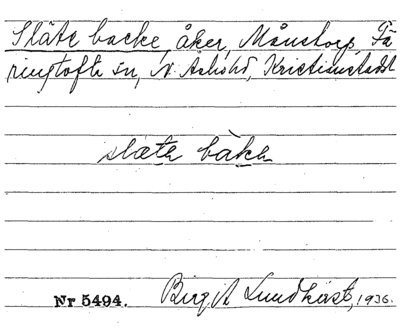 Släte backe, åker, Månstorp, Fä
ringtofta sn, N. Åsbohd, Kristianstad
slæta bàka
Nr 5494. Birgit Lundkvist, 1936.